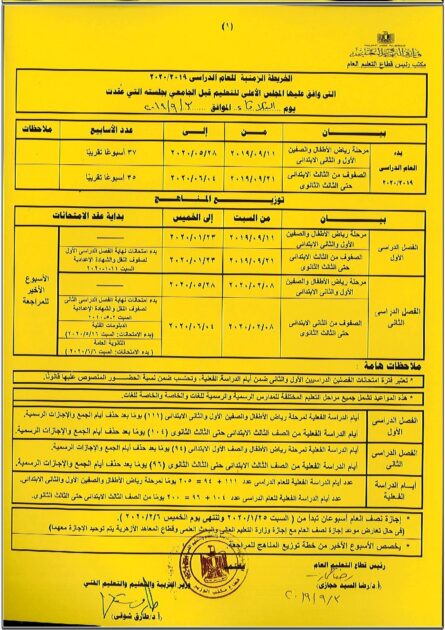 (١)
مكتب رئيس قطاع التعليم العام
الخريطة الزمنية للعام الدراسى ٢٠٢٠/٢٠١٩
التى وافق عليها المجلس الأعلى للتعليم قبل الجامعي بجلسته التي عُقدت
يوم الثلاثاء الموافق ٢٠١٩/٩/٣
بيـــان مـــن إلـــى عدد الأسابيع ملاحظات
بدء العام الدراسى ٢٠٢٠/٢٠١٩
مرحلة رياض الأطفال والصفين الأول و الثانى الابتدائى ٢٠١٩/٠٩/١١ ٢٠٢٠/٠٥/٢٨ ٣٧ أسبوعًا تقريبًا
الصفوف من الثالث الابتدائى حتى الثالث الثانوى ٢٠١٩/٠٩/٢١ ٢٠٢٠/٠٦/٠٤ ٣٥ أسبوعًا تقريبًا
توزيـــع المنـــاهج
بيـــان من السبت إلى الخميس بداية عقد الامتحانات
الفصل الدراسى الأول
مرحلة رياض الأطفال والصفين الأول والثانى الابتدائى ٢٠١٩/٠٩/١١ ٢٠٢٠/٠١/٢٣
الصفوف من الثالث الابتدائى حتى الثالث الثانوى ٢٠١٩/٠٩/٢١ ٢٠٢٠/٠١/٢٣
بدء امتحانات نهاية الفصل الدراسى الأول لصفوف النقل والشهادة الإعدادية
الفصل الدراسى الثانى
مرحلة رياض الأطفال والصفين الأول والثانى الابتدائى ٢٠٢٠/٠٢/٠٨ ٢٠٢٠/٠٥/٢٨
الصفوف من الثالث الابتدائى حتى الثالث الثانوى ٢٠٢٠/٠٢/٠٨ ٢٠٢٠/٠٦/٠٤
بدء امتحانات نهاية الفصل الدراسى الثانى لصفوف النقل والشهادة الإعدادية
الدبلومات الفنية
(بدء الامتحانات: السبت ٢٠٢٠/٥/١٦)
الثانوية العامة
(بدء الامتحانات: السبت ٢٠٢٠/٦/٦)
الأسبوع الأخير للمراجعة
ملاحظات هامة :
* تعتبر فترة امتحانات الفصلين الدراسيين الأول والثانى ضمن أيام الدراسة الفعلية، وتحتسب ضمن نسبة الحضـــور المنصوص عليها قانونًا.
* هذه المواعيد تشمل جميع مراحل التعليم المختلفة للمدارس الرسمية والرسمية للغات والخاصة والخاصة للغات.
الفصل الدراسى الأول
أيام الدراسة الفعلية لمرحلة رياض الأطفال والصفين الأول والثانى الابتدائى (١١١) يومًا بعد حذف أيام الجمع والإجازات الرسمية.
أيام الدراسة الفعلية من الصف الثالث الابتدائى حتى الصف الثالث الثانوى (١٠٤) يومًا بعد حذف أيام الجمع والإجازات الرسمية.
الفصل الدراسى الثانى
أيام الدراسة الفعلية لمرحلة رياض الأطفال والصفين الأول والثانى الابتدائى (٩٤) يومًا بعد حذف أيام الجمع والإجازات الرسمية.
أيام الدراسة الفعلية من الصف الثالث الابتدائى حتى الصف الثالث الثانوى (٩٦) يومًا بعد حذف أيام الجمع والإجازات الرسمية.
أيام الدراسة الفعلية
عدد أيام الدراسة الفعلية للعام الدراسى عدد ١١١ + ٩٤ = ٢٠٥ يومًا لمرحلة رياض الأطفال والصفين الأول والثانى الابتدائى.
عدد أيام الدراسة الفعلية للعام الدراسى عدد ١٠٤ + ٩٦ = ٢٠٠ يوم من الصف الثالث الابتدائى حتى الصف الثالث الثانوى.
* إجازة نصف العام أسبوعان تبدأ من ( السبت ٢٠٢٠/١/٢٥ وتنتهى يوم الخميس ٢٠٢٠/٢/٦ )
(فى حال تعارض موعد إجازة نصف العام مع إجازة وزارة التعليم العالى والبحث العلمى وقطاع المعاهد الأزهرية يتم توحيد الإجازة معهما)
* يخصص الأسبوع الأخير من خطة توزيع المناهج للمراجعة
رئيس قطاع التعليم العام
(أ.د/ رضا السيد حجازى)
٢٠١٩/٩/٣
يعتمد
وزير التربية والتعليم والتعليم الفنى
(أ.د/ طارق شوقى)